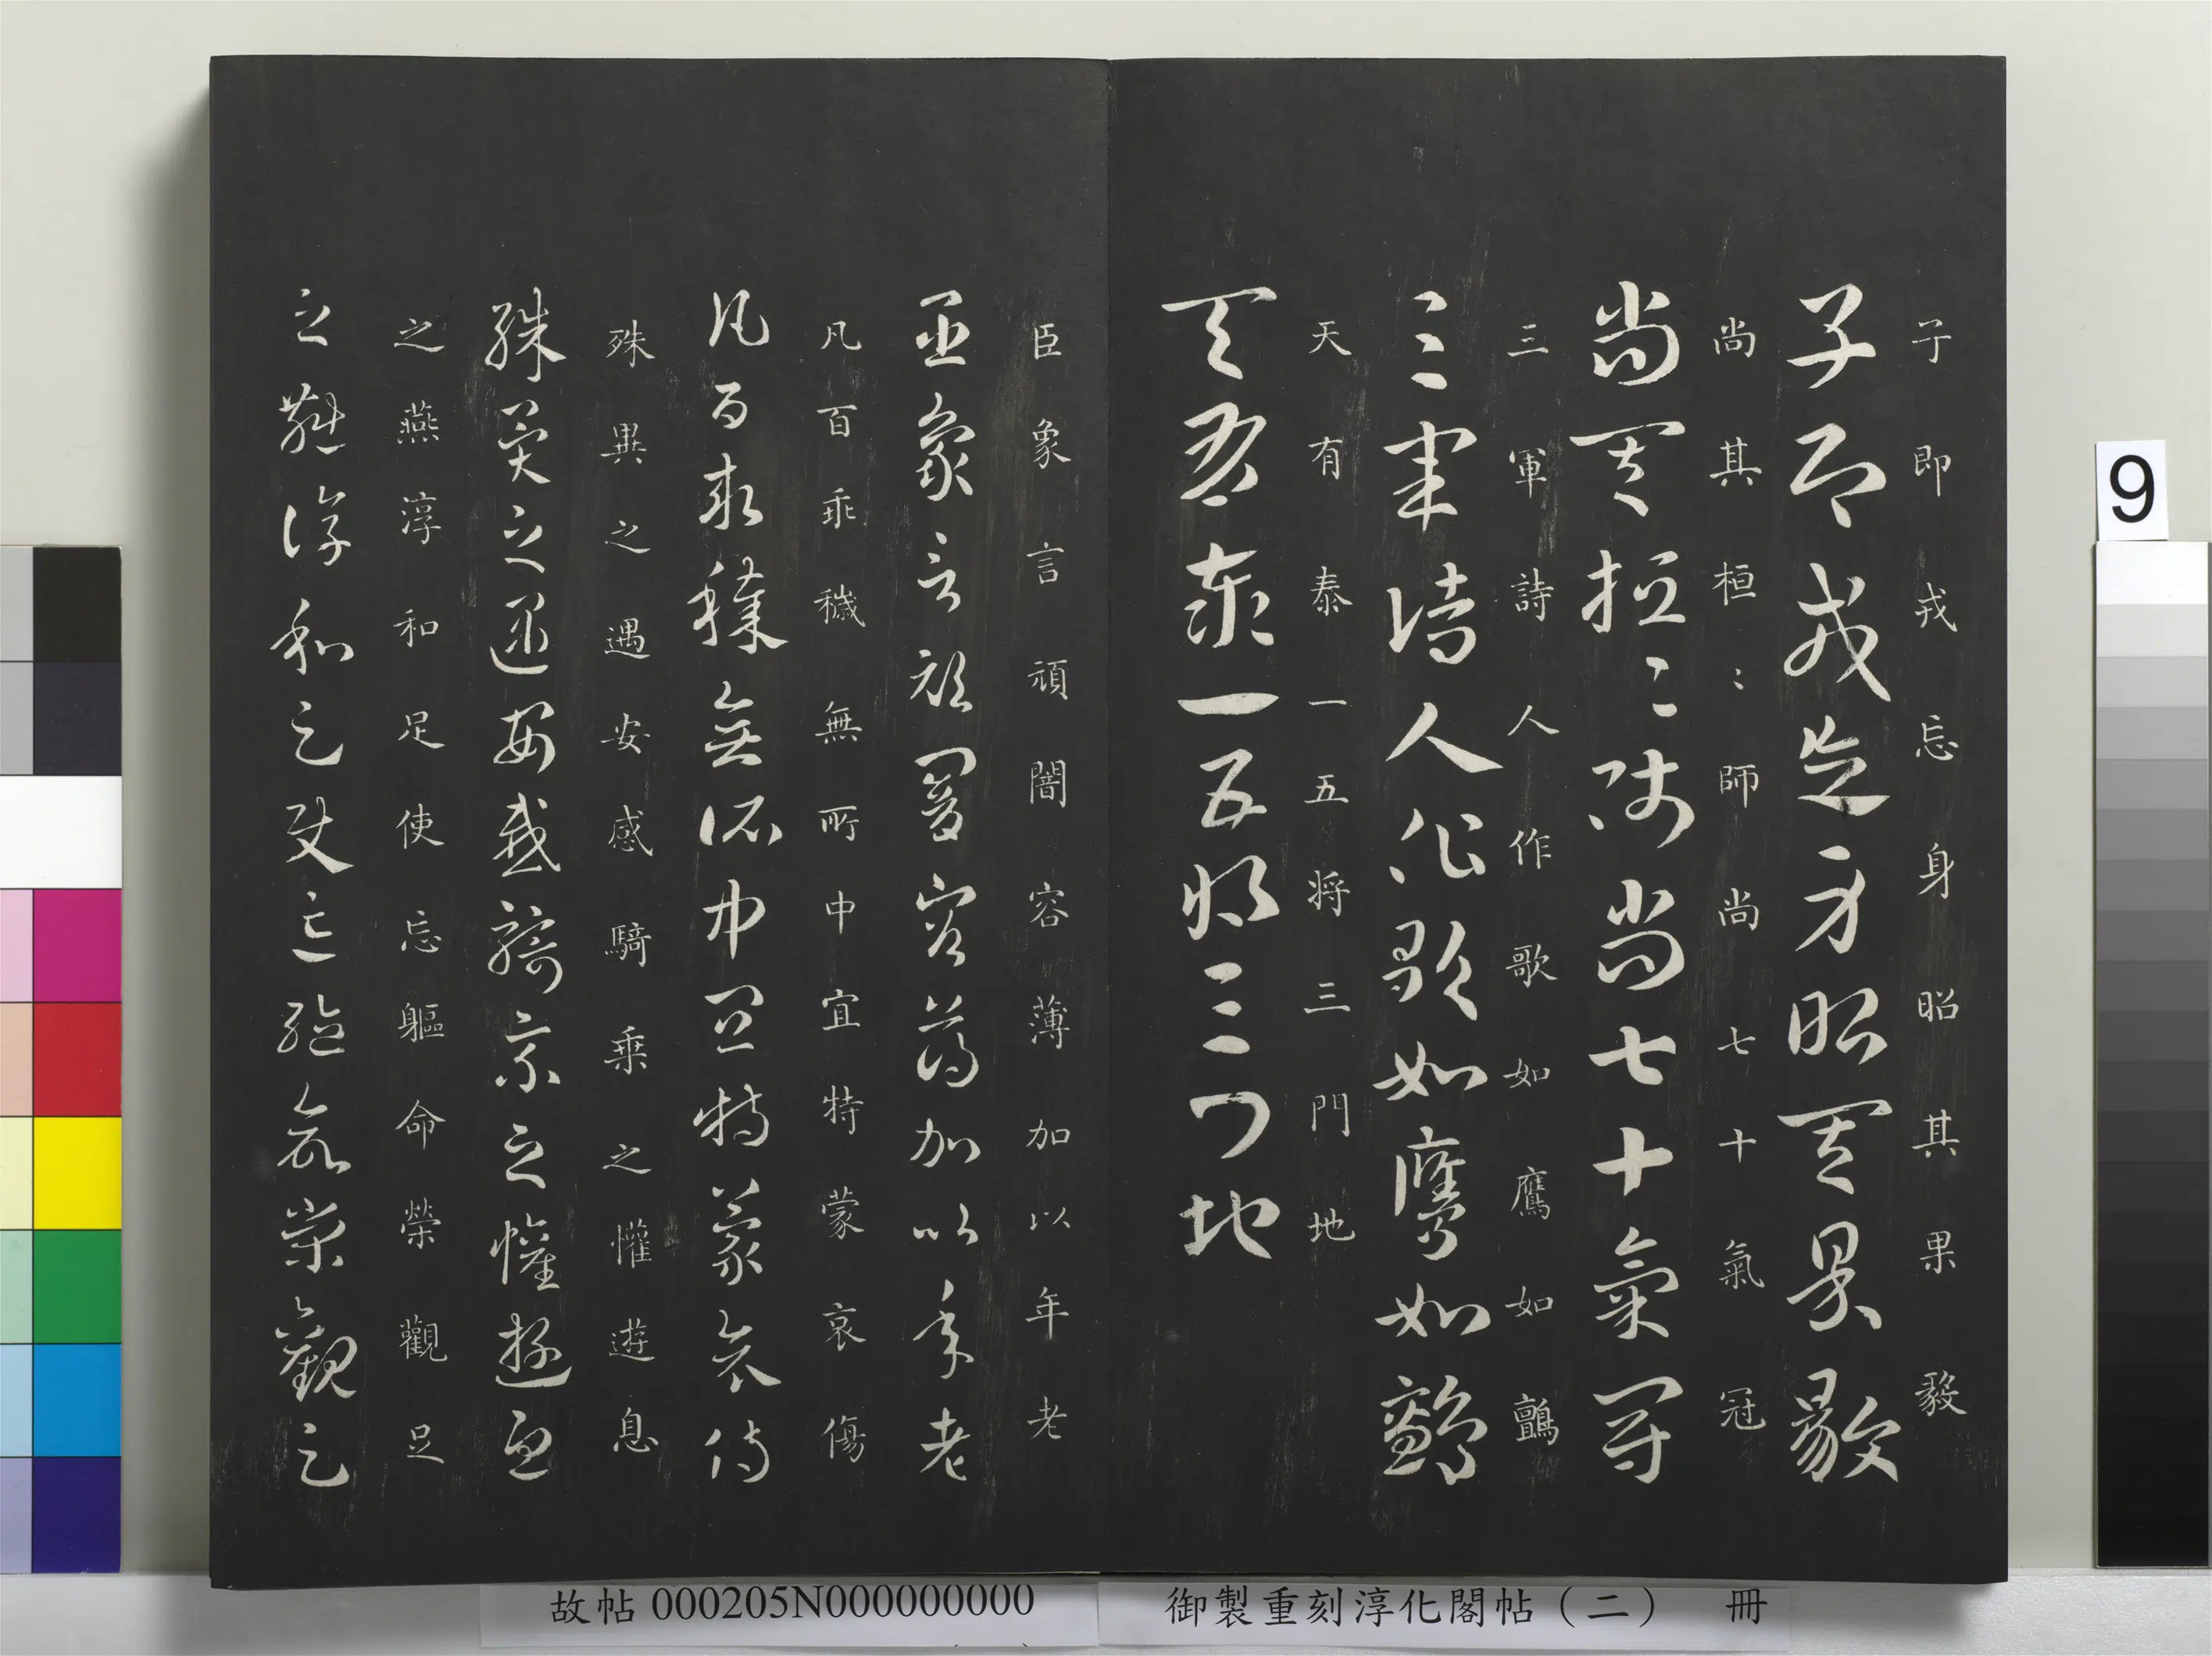 子即戎忘身昭其果毅
子即戎忘身昭其果毅
尚其桓〻師尚七十氣冠
尚其桓〻師尚七十氣冠
三軍詩人作歌如鷹如鸇
三軍詩人作歌如鷹如鸇
天有泰一五将三門地
天有泰一五将三門地
臣象言頑闇容薄加以年老
臣象言頑闇容薄加以年老
凡百乖穢無所中宜特蒙哀傷
凡百乖穢無所中宜特蒙哀傷
殊異之遇安感騎乗之懽遊息
殊異之遇安感騎乗之懽遊息
之燕淳和足使忘軀命榮觀足
之燕淳和足使忘軀命榮觀足
9
故帖 000205N000000000
御製重刻淳化閣帖（二） 冊